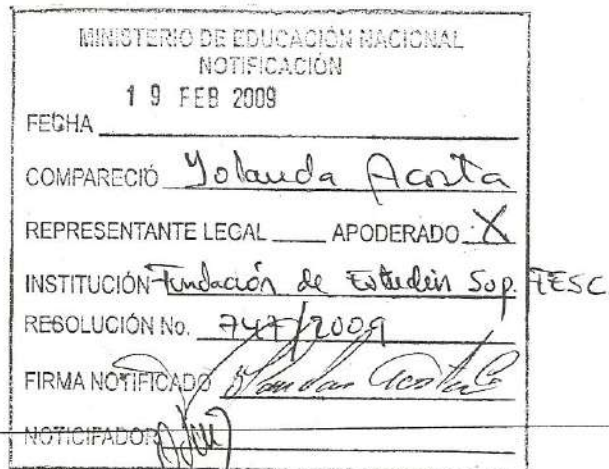 MINISTERIO DE EDUCACIÓN NACIONAL
NOTIFICACIÓN
19 FEB 2009
FECHA
COMPARECIÓ Yolanda Acosta
REPRESENTANTE LEGAL APODERADO X
INSTITUCIÓN Fundación de Estudios Sup. FESC
RESOLUCIÓN No. 747/2009
FIRMA NOTIFICADO Yolanda Acosta
NOTICIFADOR